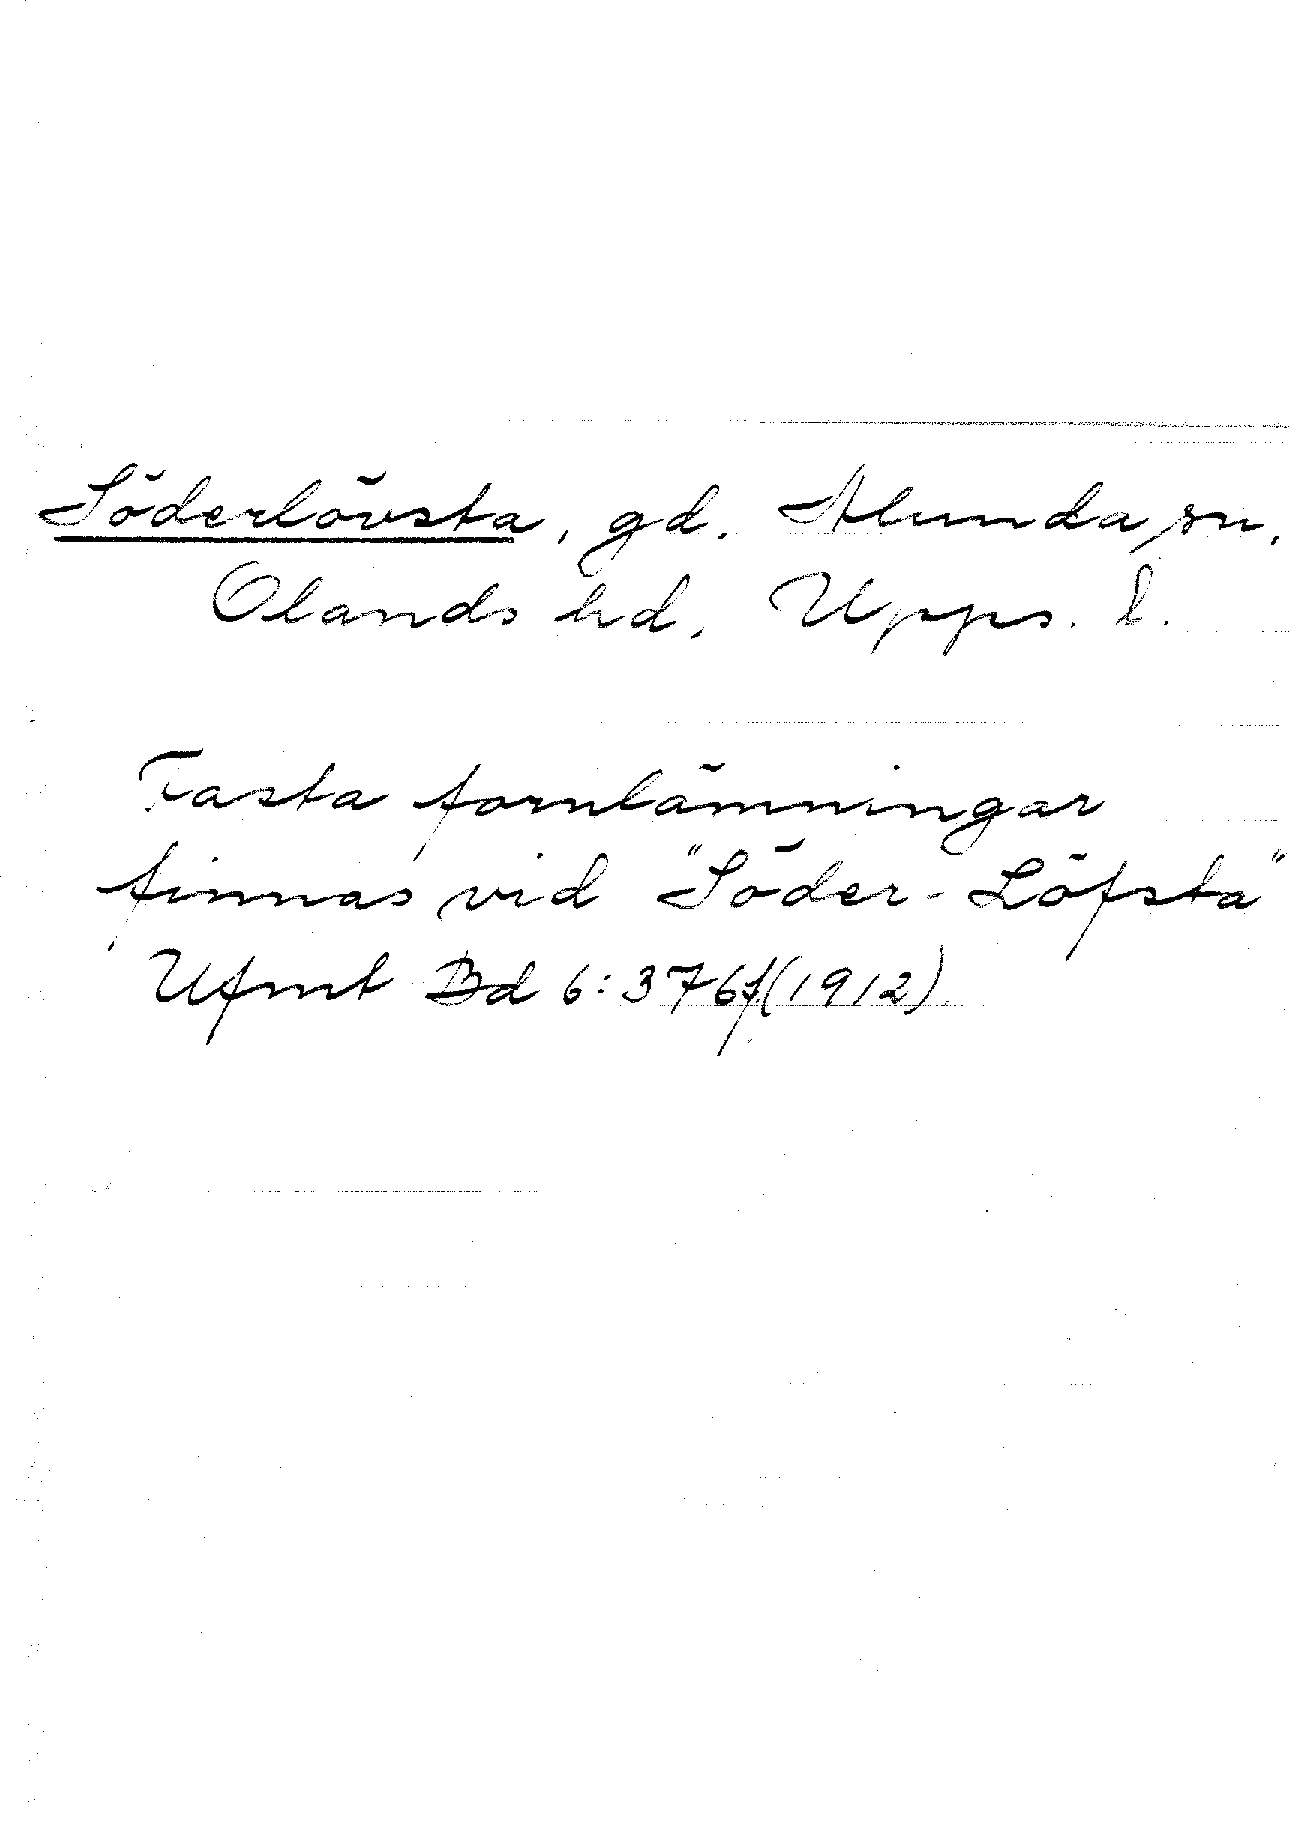 Söderlövsta, gd. Alunda sn,
Olands hd, Upps. l.
Fasta fornlämningar
finnas vid "Söder-Löfsta"
Ufmt Bd 6:376f(1912)